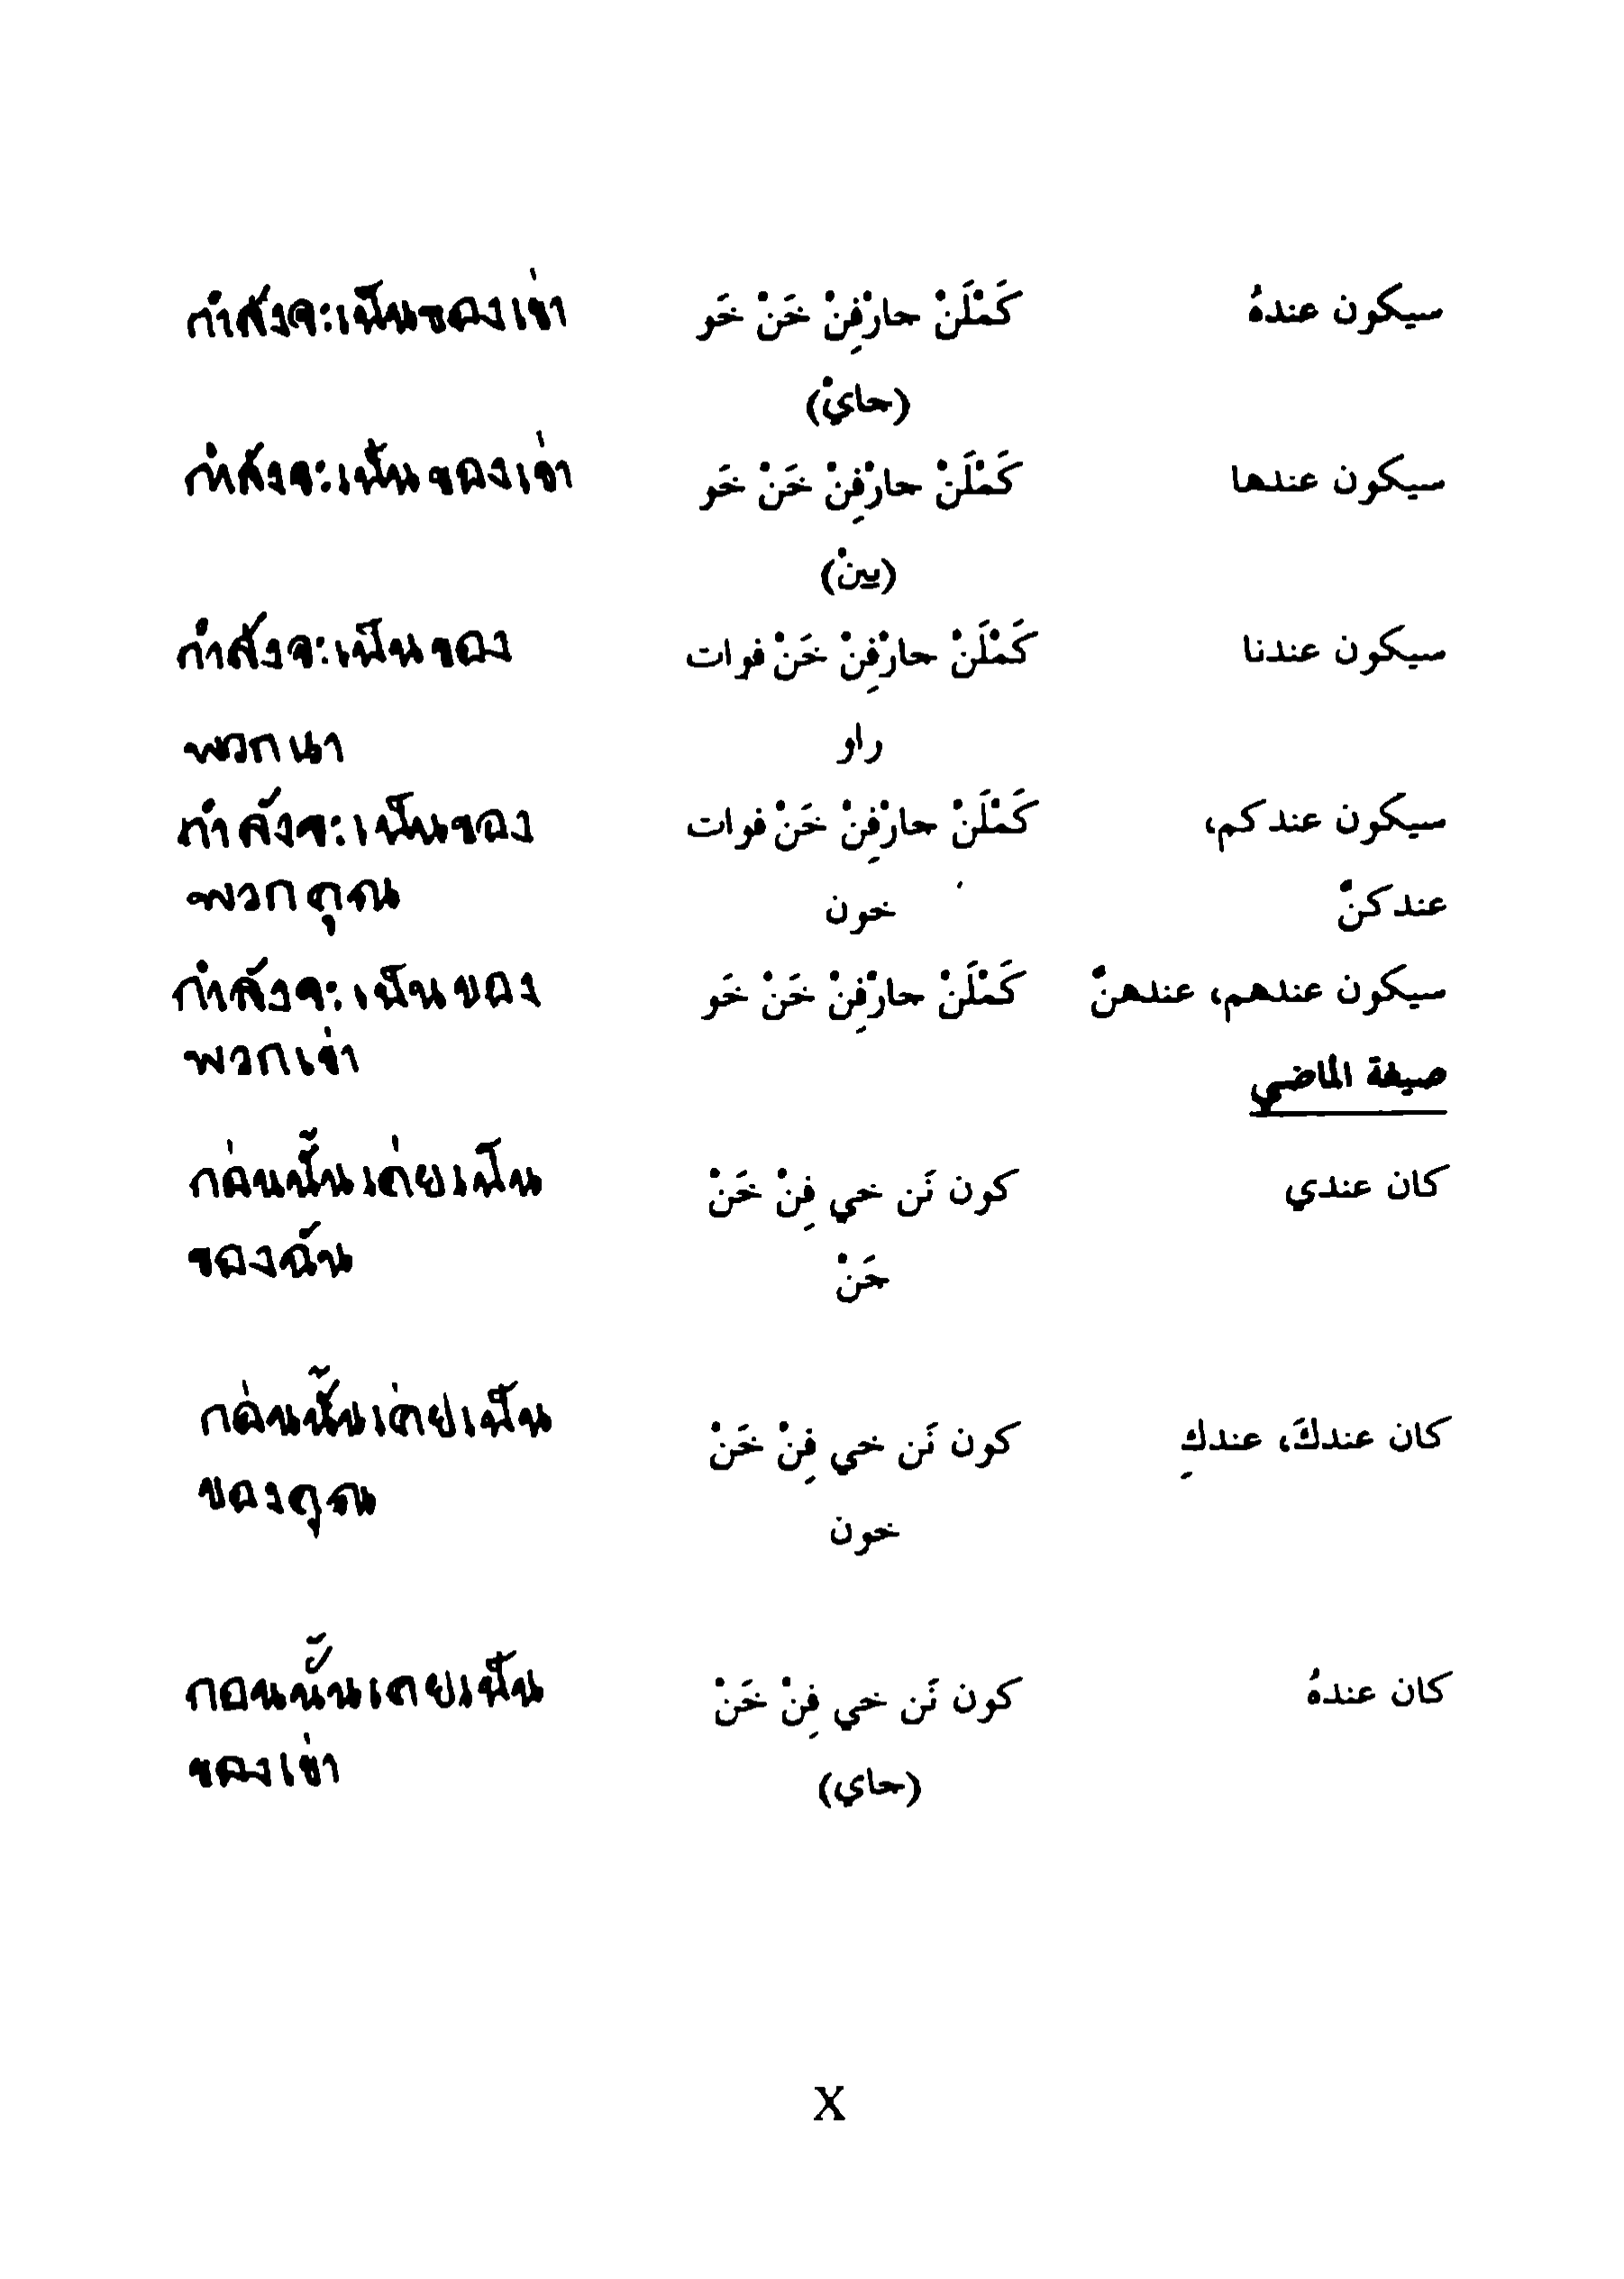 سيكون عندهُ كَمْلَنْ حارْفِنْ خَنْ خَو กำลังจะเป็นของเข่า
(حايْ)
سيكون عندها كَمْلَنْ حارْفِنْ خَنْ خَو กำลังจะเป็นของเข่า
(يينْ)
سيكون عندنا كَمْلَنْ حارْفِنْ خَنْ فوات กำลังจะเป็นของ
راو พวกนา
سيكون عندكم، كَمْلَنْ حارْفِنْ خَنْ فوات กำลังจะเป็นของ
عندكنّ خون พวกคุณ
سيكون عندهم، عندهنّ كَمْلَنْ حارْفِنْ خَنْ خَو กำลังจะเป็นของ
พวกเข่า
صيغة الماضي
كان عندي كون نَن خي فِنْ خَنْ กอ่นนั้นเค่ยเป็น
حَنْ ของฉัน
كان عندكَ، عندكِ كون نَن خي فِنْ خَنْ กอ่นนั้นเค่ยเป็น
خون ของคุณ
كان عندهُ كون نَن خي فِنْ خَنْ กอนนั้นเคยเป็น
(حاي) ของเข่า
X